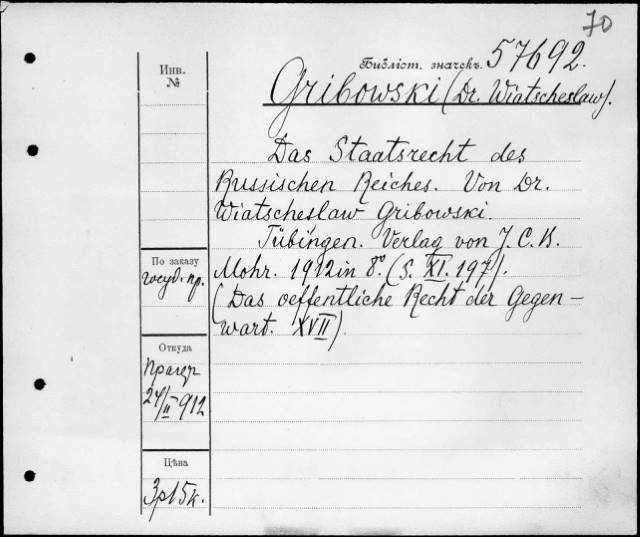 70
Библіот. значекъ 57692.
Инв.
№
Gribowski (Dr. Wiatscheslaw).
Das Staatsrecht des
Russischen Reiches. Von Dr.
Wiatscheslaw Gribowski.
Tübingen. Verlag von J. C. B.
Mohr. 1912 in 8º. (S. XI. 197).
(Das oeffentliche Recht der Gegen-
wart. XVII).
По заказу
госуд. пр.
Откуда
24/II 912
Цѣна
3р15к.